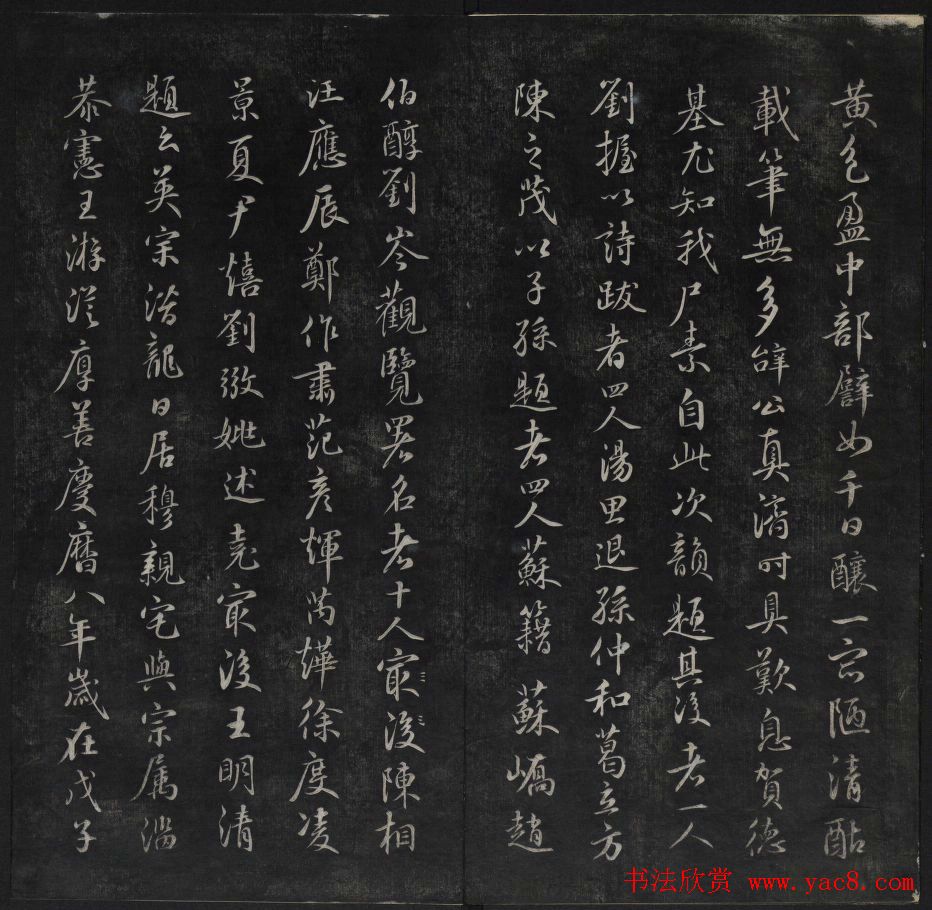 黄色盈中部譬如千日釀一宗陋清酤
載筆無多辞公真濟时具歎息賀德
基尤知我尸素自此次韻題其後者一人
劉握以詩跋者四人湯思退孫仲和葛立方
陳之茂以子孫題者四人蘇籀蘇嶠趙
伯醇劉岑觀覽署名者十人最後陳相
汪應辰鄭作肅范彦輝萬燁徐度凌
景夏尹熺劉敏姚述堯最後王明清
題云英宗潛龍日居穆親宅與宗属
恭憲王游從厚善慶曆八年歲在戊子
书法欣赏 www.yac8.com